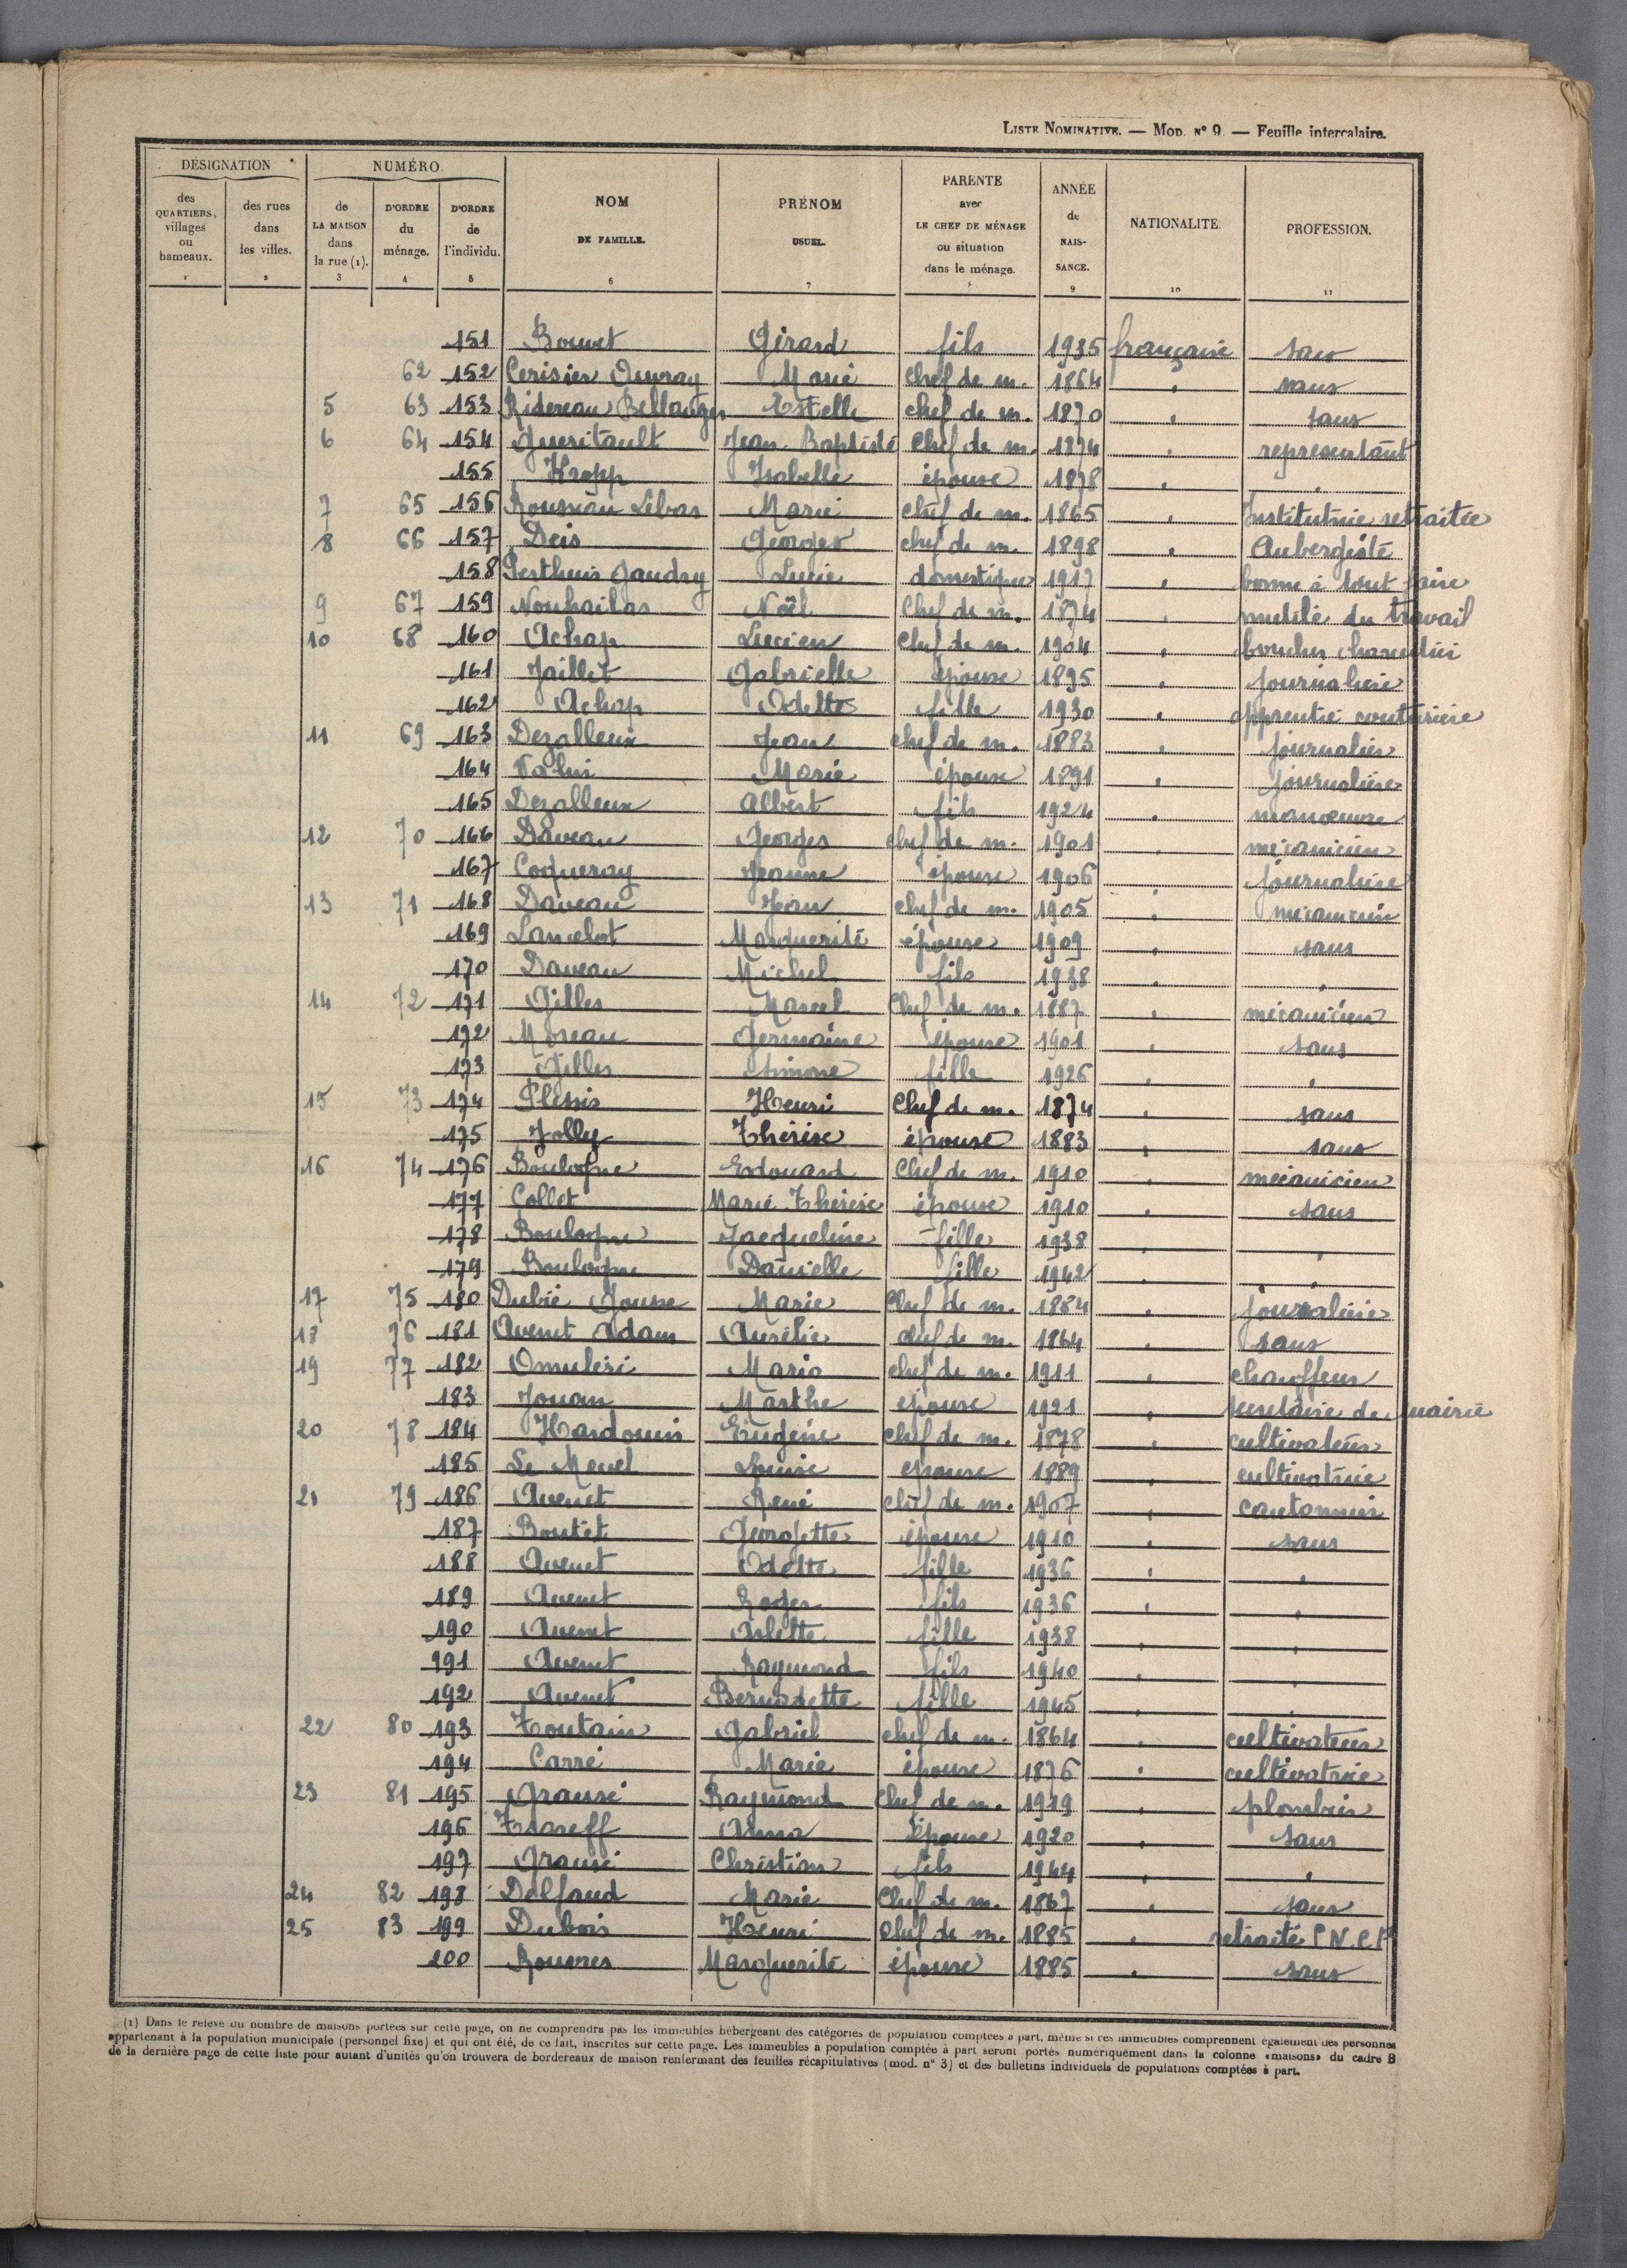 LISTE NOMINATIVE. — MOD. N° 9. — Feuille intercalaire.
DÉSIGNATION NUMÉRO
des QUARTIERS, villages ou hameaux. 1
des rues dans les villes. 2
de LA MAISON dans la rue (1). 3
D'ORDRE du ménage. 4
D'ORDRE de l'individu. 5
NOM DE FAMILLE. 6
PRÉNOM USUEL. 7
PARENTÉ avec LE CHEF DE MÉNAGE ou situation dans le ménage.
ANNÉE de NAIS-SANCE. 9
NATIONALITE. 10
PROFESSION. 11
151 Gérard fils 1935 française sans
62 152 Cerisier Marie Chef de m. 1864 " sans
5 63 153 Ridereau Bellanger Estelle chef de m. 1870 " sans
6 64 154 Gueritault Jean Baptiste Chef de m. 1874 " représentant
155 Kropp Isabelle épouse 1878 " "
7 65 156 Rousseau Lebas Marie chef de m. 1865 " Institutrice retraitée
8 66 157 Deis Georges chef de m. 1898 " Aubergiste
158 Perthuis Jaudry Lucie domestique 1917 " bonne à tout faire
9 67 159 Nouhailas Noël Chef de m. 1874 " mutilé du travail
10 68 160 Achap Lucien Chef de m. 1904 " boucher charcutier
161 Jaillet Gabrielle épouse 1895 " journalière
162 Achap Odette fille 1930 " apprentie couturière
11 69 163 Dezalleux Jean chef de m. 1883 " journalier
164 Marie épouse 1891 " journalière
165 Dezalleux Albert fils 1924 " manoeuvre
12 70 166 Daveau Georges chef de m. 1901 " mécanicien
167 Coqueray Jeanne épouse 1906 " journalière
13 71 168 Daveau Jean chef de m. 1905 " mécanicien
169 Lancelot Marguerite épouse 1909 " sans
170 Daveau Michel fils 1938 " "
14 72 171 Gilles Marcel Chef de m. 1887 " mécanicien
172 Moreau Germaine épouse 1901 " sans
173 Gilles Simone fille 1926 " "
15 73 174 Plessis Henri Chef de m. 1874 " sans
175 Jolly Thérèse épouse 1883 " sans
16 74 176 Boulogne Edouard Chef de m. 1910 " mécanicien
177 Collet Marie Thérèse épouse 1910 " sans
178 Boulogne Jacqueline fille 1938 " "
179 Boulogne Danielle fille 1942 " "
17 75 180 Dubié Jousse Marie Chef de m. 1884 " journalière
18 76 181 Avenet Adam Aurélie chef de m. 1864 " sans
19 77 182 Omuleri Mario chef de m. 1911 " chauffeur
183 Jouan Marthe épouse 1921 " secrétaire de mairie
20 78 184 Hardouin Eugène chef de m. 1878 " cultivateur
185 Le Menel Louise épouse 1889 " cultivatrice
21 79 186 Avenet René chef de m. 1907 " cantonnier
187 Boutet Georgette épouse 1910 " sans
188 Avenet Odette fille 1936 " "
189 Avenet Roger fils 1936 " "
190 Avenet Arlette fille 1938 " "
191 Avenet Raymond fils 1940 " "
192 Avenet Bernadette fille 1945 " "
22 80 193 Toutain Gabriel chef de m. 1864 " cultivateur
194 Carré Marie épouse 1876 " cultivatrice
23 81 195 Raymond Chef de m. 1919 " plombier
196 Anna épouse 1920 " sans
197 Christian fils 1944 " "
24 82 198 Delfaud Marie Chef de m. 1867 " sans
25 83 199 Dubois Henri Chef de m. 1885 " retraité S.N.C.F.
200 Rouvres Marguerite épouse 1885 " sans
(1) Dans le relevé du nombre de maisons portées sur cette page, on ne comprendra pas les immeubles hébergeant des catégories de population comptées à part, même si ces immeubles comprennent également des personnes
appartenant à la population municipale (personnel fixe) et qui ont été, de ce fait, inscrites sur cette page. Les immeubles à population comptée à part seront portés numériquement dans la colonne «maisons» du cadre B
de la dernière page de cette liste pour autant d'unités qu'on trouvera de bordereaux de maison renfermant des feuilles récapitulatives (mod. n° 3) et des bulletins individuels de populations comptées à part.